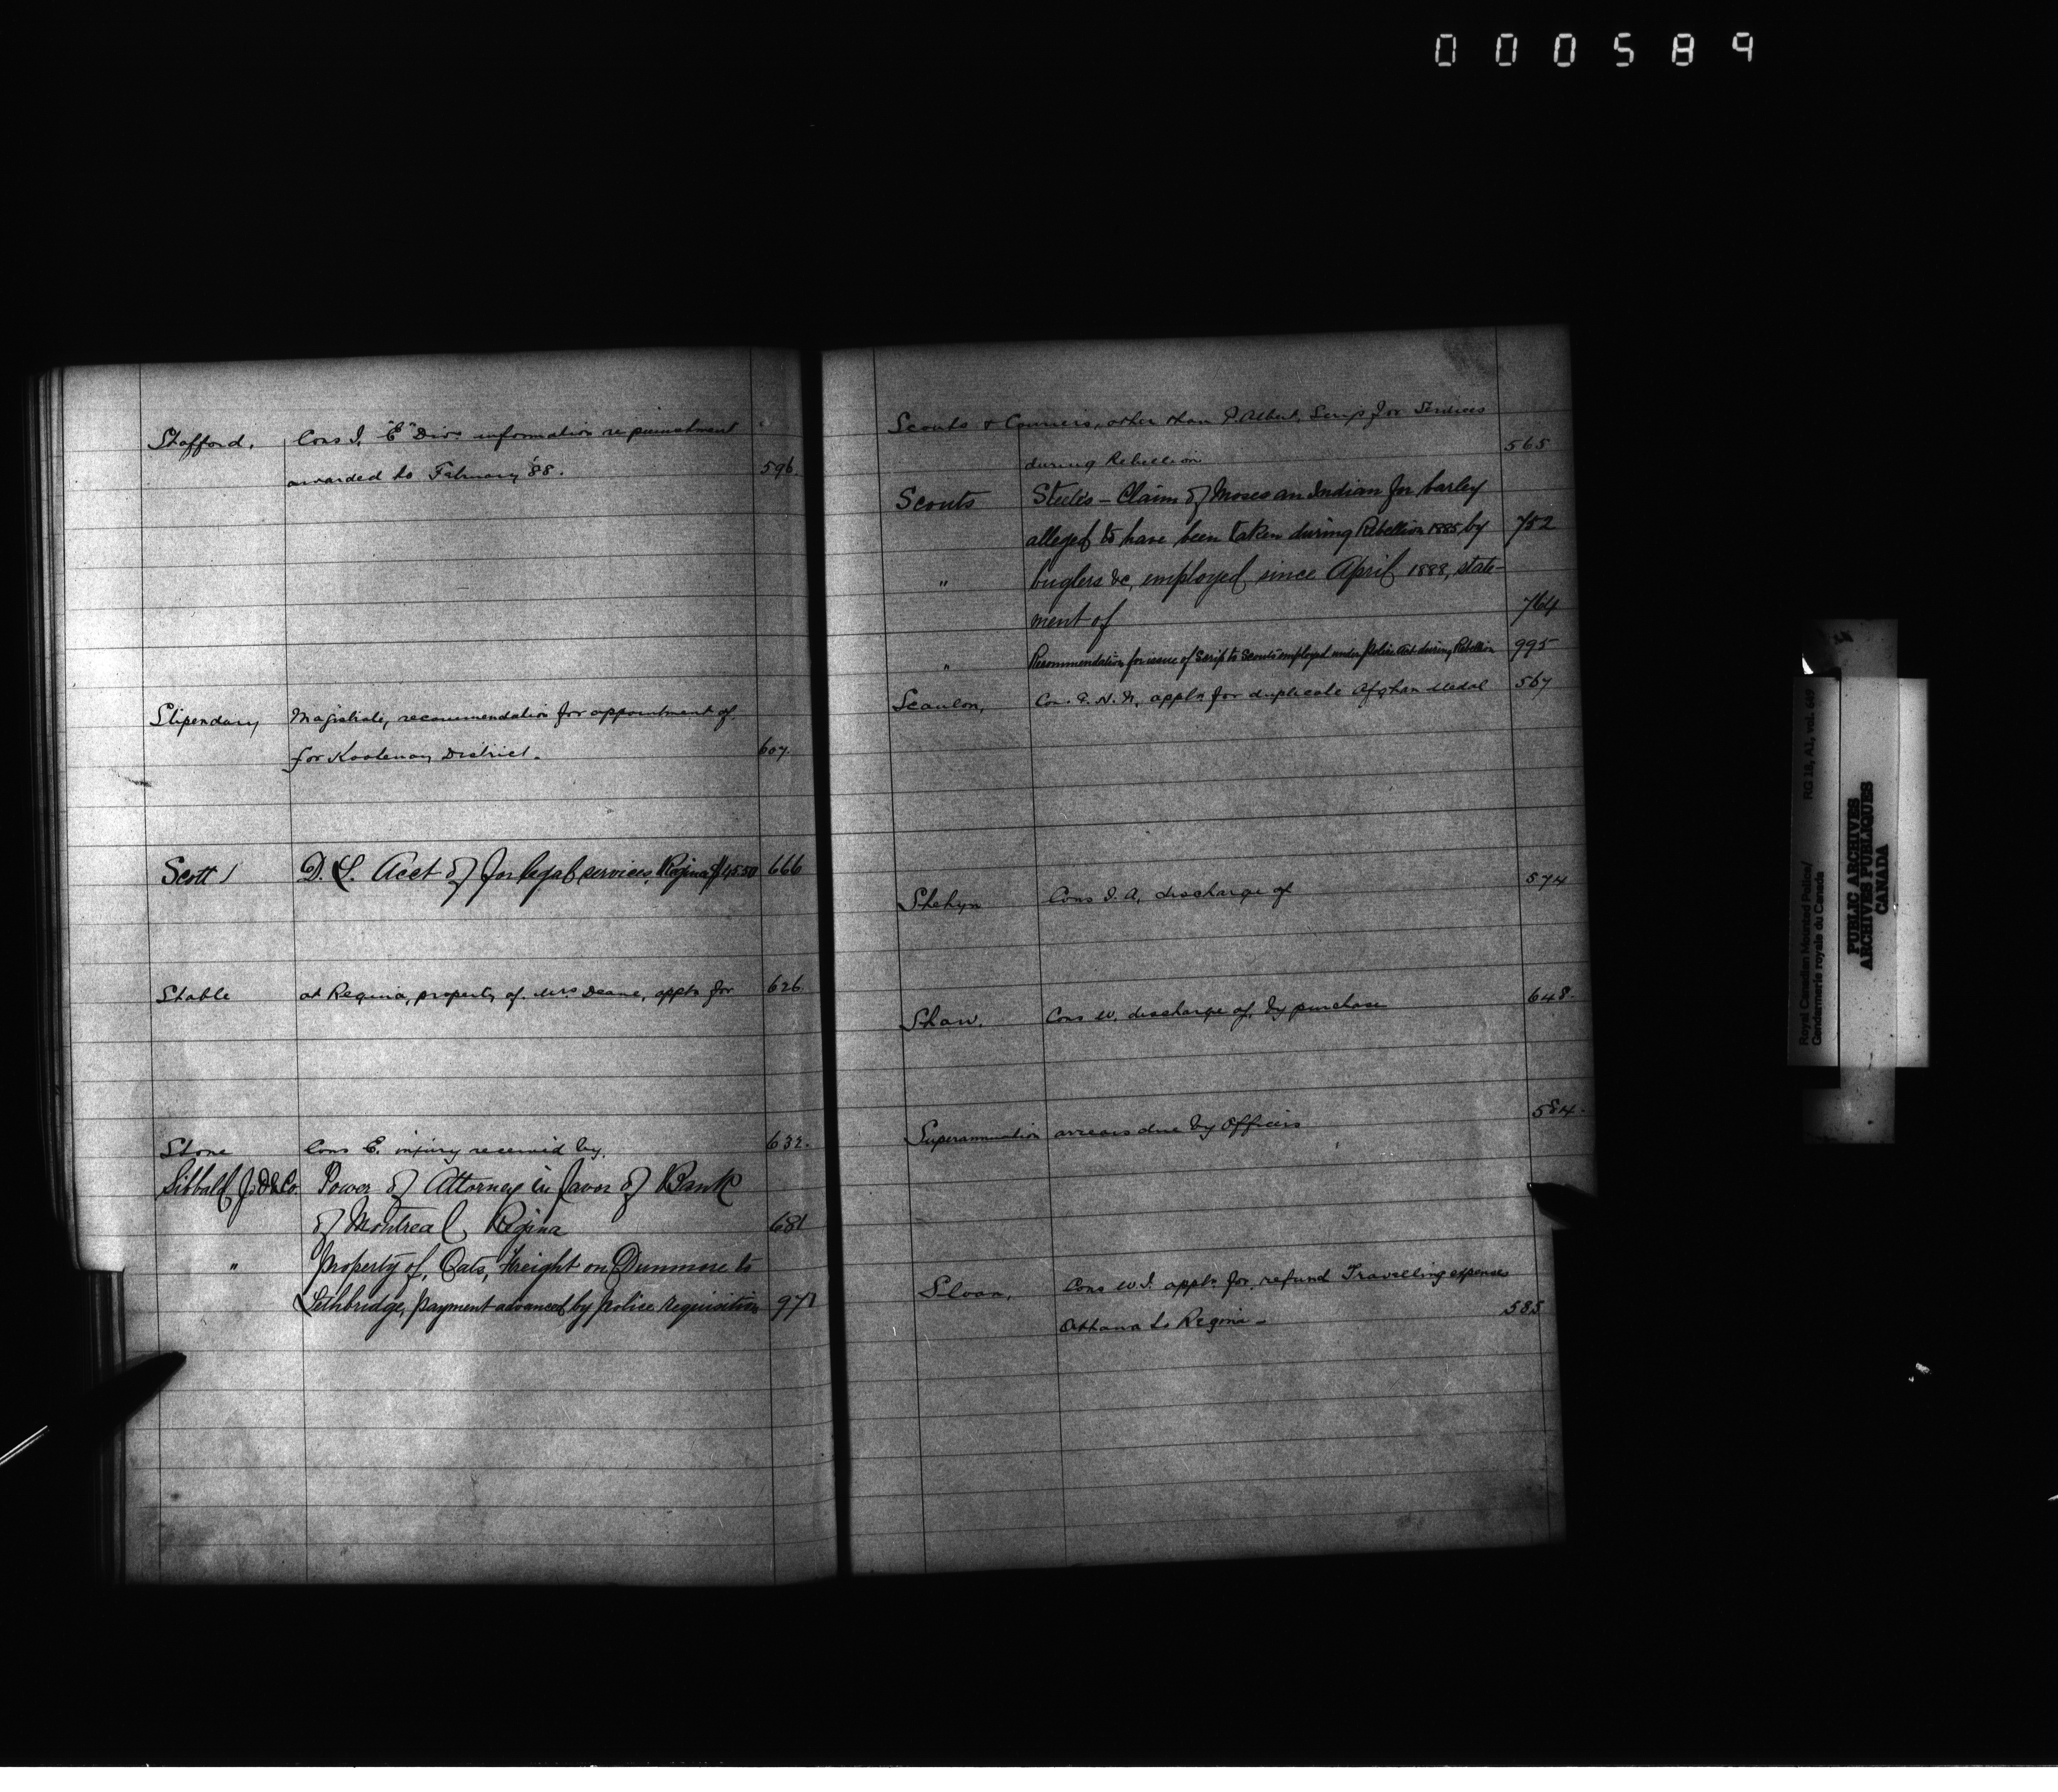 000589
Stafford, Cons J. "E" Divn information re punishment
awarded to February '88. 596.
Stipendary Magistrate, recommendation for appointment of
for Kootenay District. 607.
Scott / D. L. Acct of for legal services, Regina $45.50 666
Stable at Regina, property of Mrs Deane, appln for 626
Stone Cons E. injury received by. 632.
Sibbald J. D & Co. Power of Attorney in favor of Bank
of Montreal Regina 681
" Property of, Oats, Freight on Dunmore to
Lethbridge, payment advanced by police requisition 971
Scouts & Couriers, other than P. Albert, Scrip for Services
during Rebellion 565
Scouts Steele's - Claim of Moses an Indian for barley
alleged to have been taken during Rebellion 1885 by 752
" buglers &c, employed since April 1888, state-
ment of 764
" Recommendation for issue of Scrip to Scouts employed under Police Act during Rebellion 995
Scanlon, Con. E. H. N, appln for duplicate Afghan Medal 567
Shehyn Cons J. A, discharge of 574
Shaw. Cons W. discharge of, by purchase 648.
Superannuation arrears due by Officers 584.
Sloan, Cons W. J. appln for refund Travelling expenses
Ottawa to Regina - 585
Royal Canadian Mounted Police/ RG 18, A1, vol. 649
Gendarmerie royale du Canada
PUBLIC ARCHIVES
ARCHIVES PUBLIQUES
CANADA